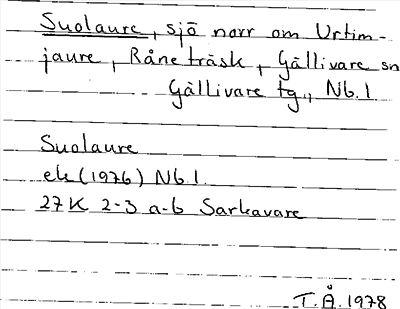 Suolaure, sjö norr om Urtim-
jaure, Råneträsk, Gällivare sn
Gällivare tg., Nb.l
Suolaure
ek (1976) Nb.l.
27K 2-3 a-b Sarkavare
T.Å. 1978